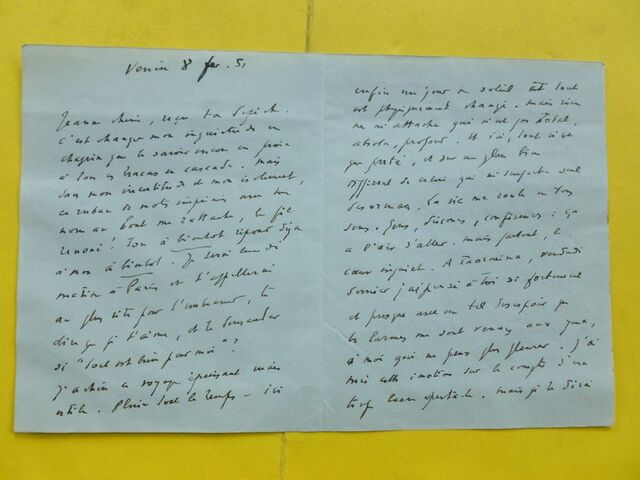 Venise 8 fev. 51
Jeanne chérie, reçu ta dépêche.
C'est changer mon inquiétude en
chagrin que te savoir encore en proie
à tous ces tracas en cascade. Mais
dans mon incertitude et mon isolement,
ce ruban de mots imprimés avec ton
nom au bout me rattache, le fil
renoué ! Ton à bientôt répond déjà
à mon à bientôt. Je serai lundi
matin à Paris et t'appellerai
au plus vite pour t'embrasser, te
dire que je t'aime, et te demander
si "tout est bien pour moi" ?
J'achève ce voyage épuisant mais
utile. Pluie tout le temps - ici
enfin un jour de soleil et tout
est physiquement changé. Mais rien
ne m'attache qui n'est pas total,
absolu, profond. Et ici, tout n'est
que prêté, et sur un plan bien
différent de celui qui m'importe seul
désormais. La vie me roule en tous
sens. Gens, discours, conférences : ça
a l'air d'aller. Mais partout, le
cœur inquiet. A Taormina, vendredi
dernier j'ai pensé à toi si fortement
et presque avec un tel désespoir que
les larmes me sont venues aux yeux,
à moi qui ne peux plus pleurer. J'ai
mis cette émotion sur le compte d'un
trop beau spectacle. Mais je te dirai